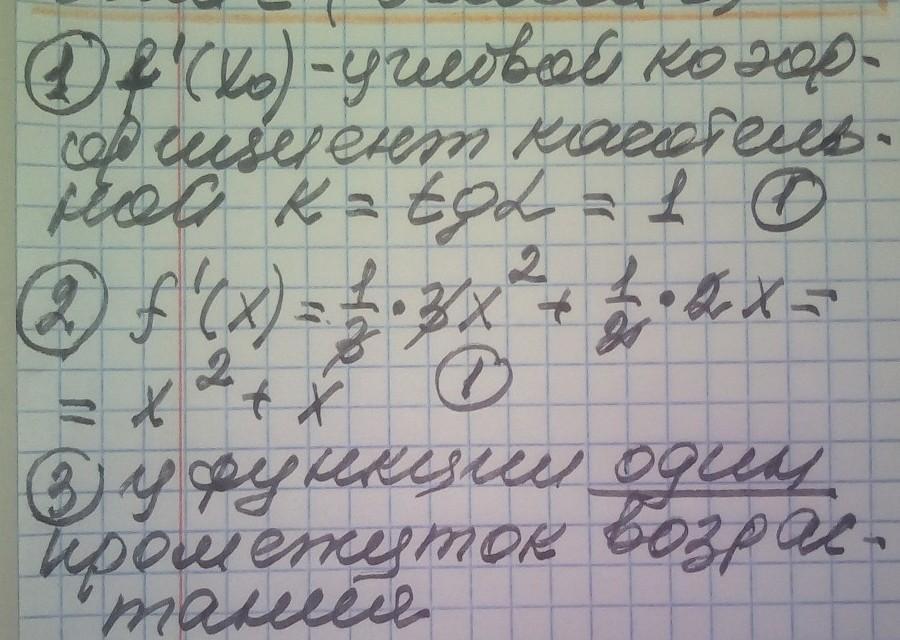 ① f'(x₀) - угловой коэф-
фициент касатель-
ной k = tgα = 1 ①
② f'(x) = 1/3 · 3x² + 1/2 · 2x =
= x² + x ①
③ у функции один
промежуток возрас-
тания